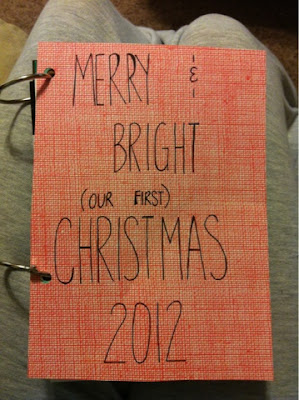 MERRY &
BRIGHT
(OUR FIRST)
CHRISTMAS
2012